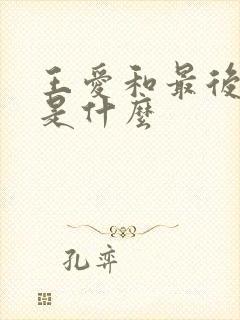 王愛和最後
是什麼
孔弈